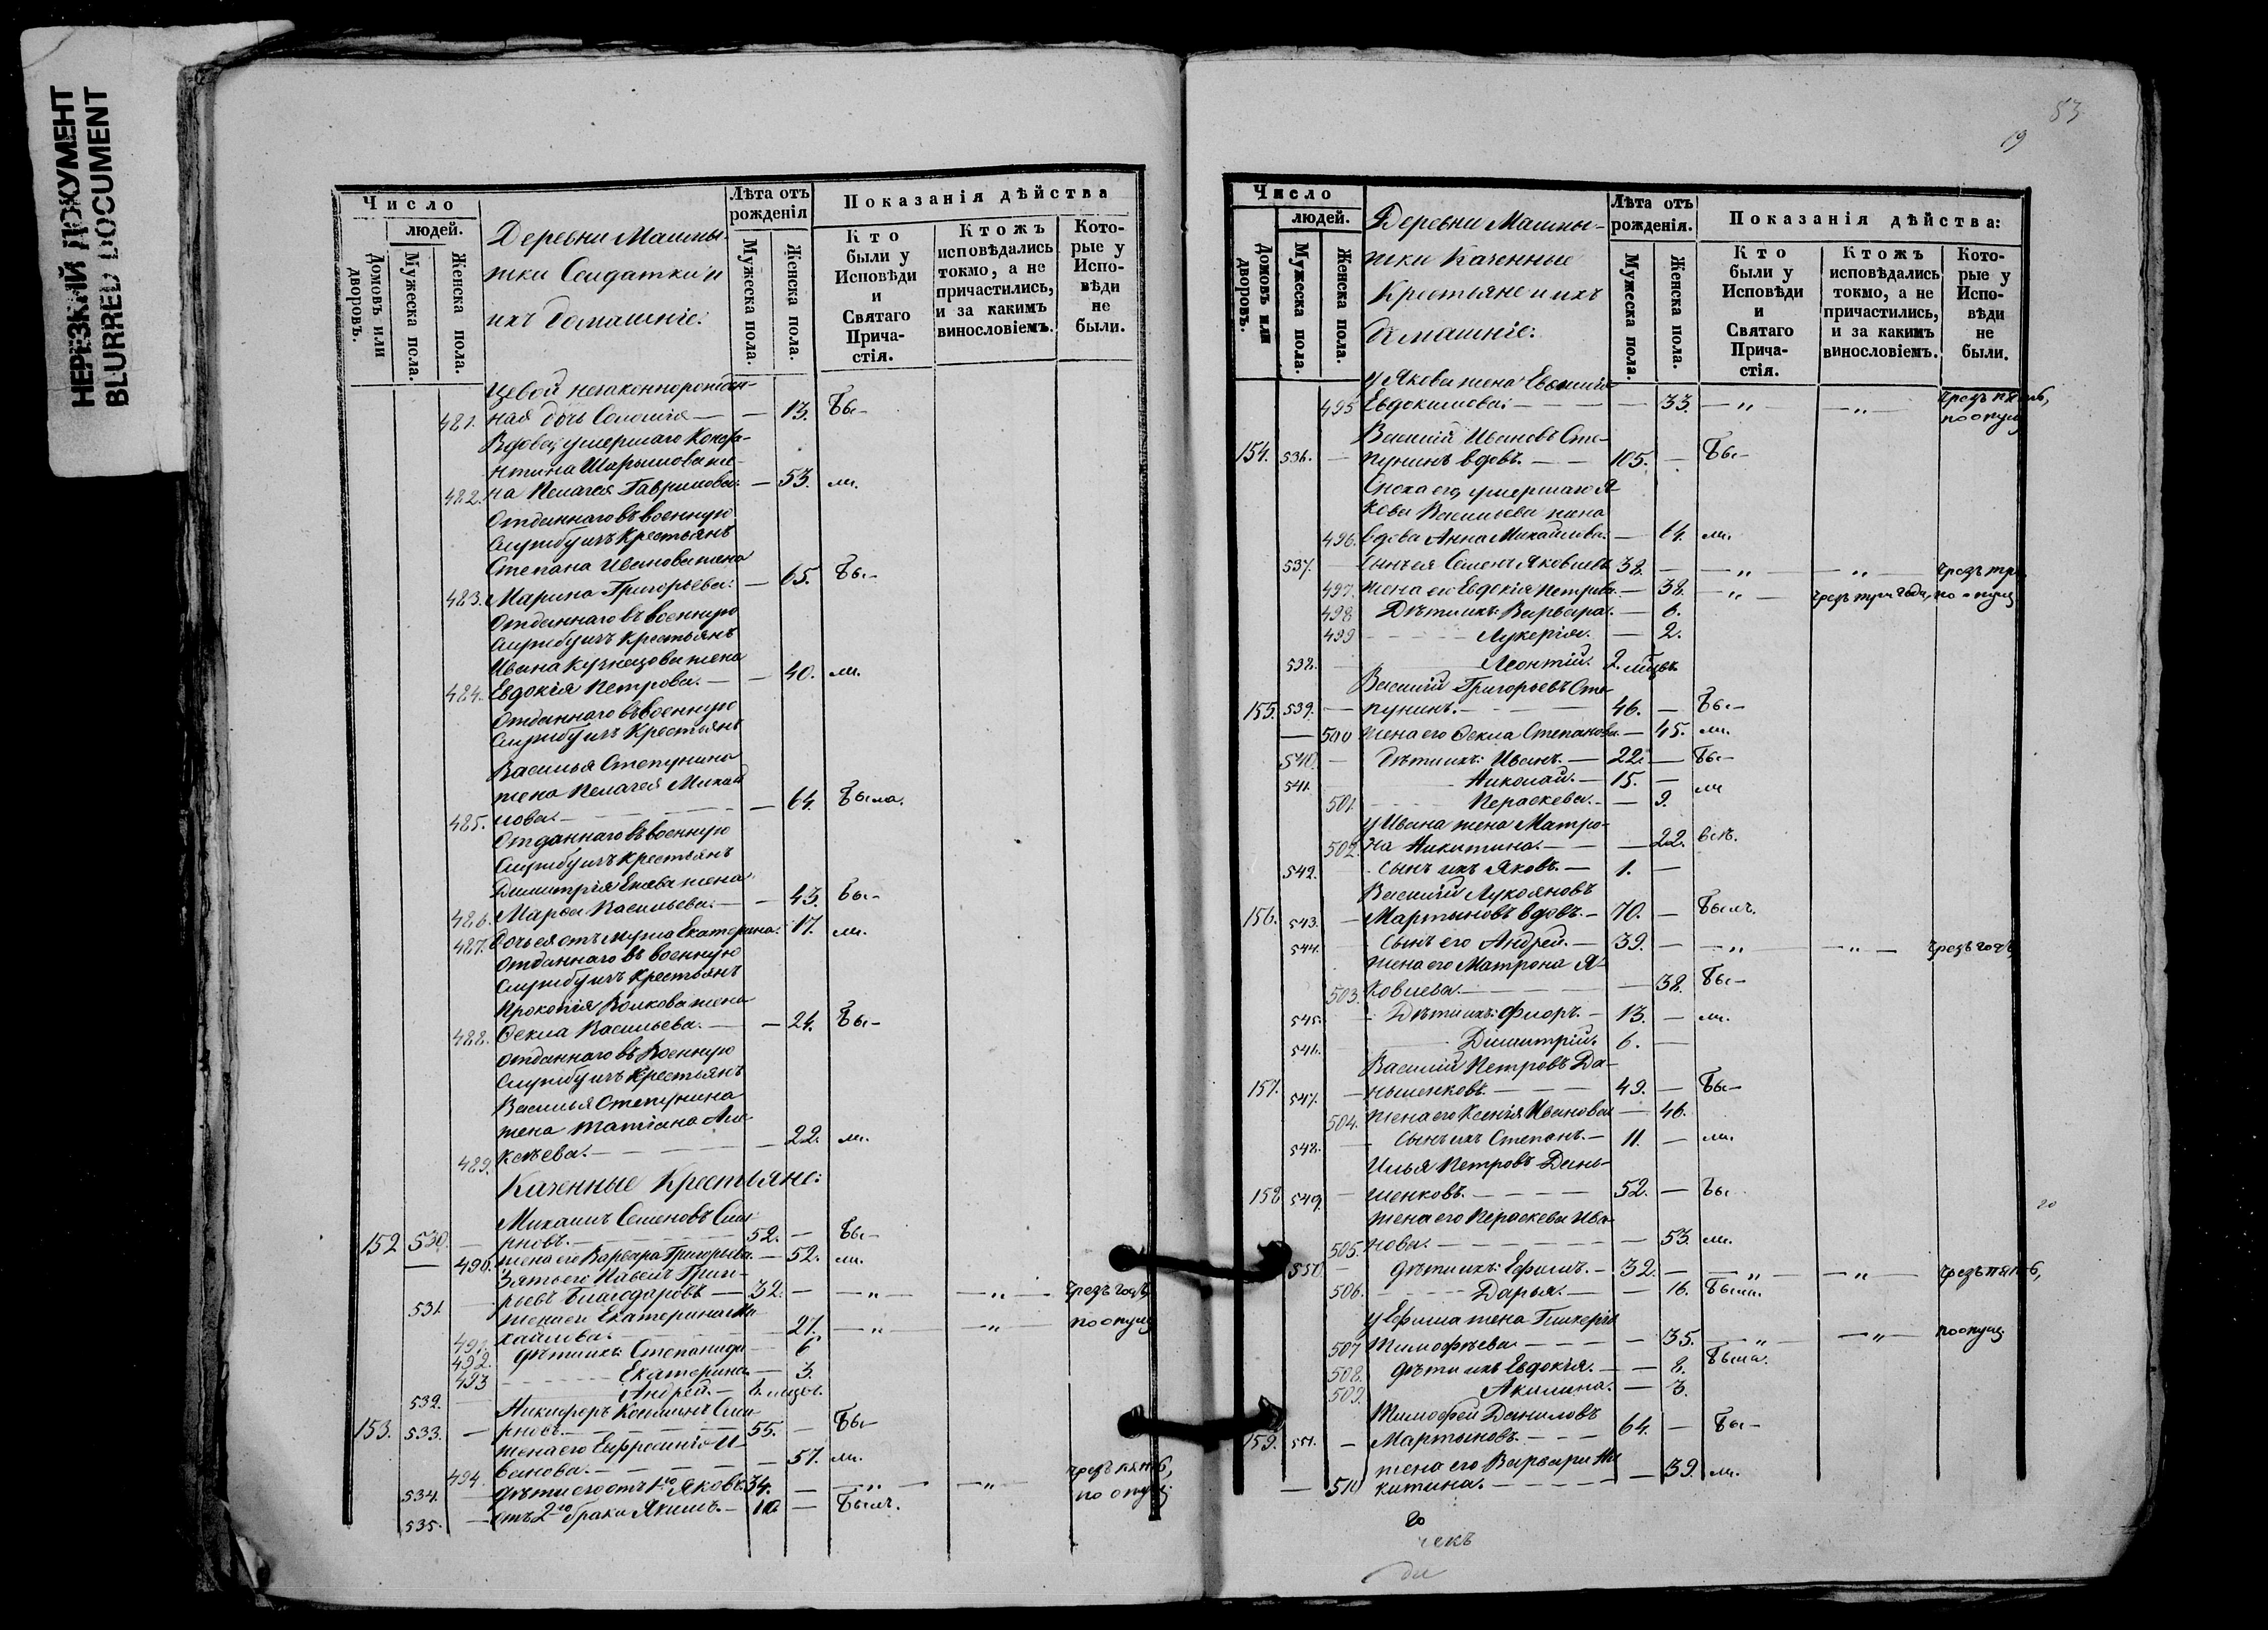 НЕРЕЗКИЙ ДОКУМЕНТ
BLURRED DOCUMENT
Число
людей.
Домовъ или дворовъ.
Мужеска пола.
Женска пола.
Деревни Машны-
тки Солдатки и
ихъ домашніе:
Лѣта отъ рожденія
Мужеска пола.
Женска пола.
Показанія дѣйства
Кто были у Исповѣди и Святаго Прича-стія.
Ктожъ исповѣдались токмо, а не причастились, и за какимъ винословіемъ.
Кото-рые у Испо-вѣди не были.
цевой незаконнорожден-
481. ная дочь Соломія — — 13. бы-
Вдова, умершаго Конста-
нтина Шарыпова же-
482. на Пелагея Гаврилова: — 53. ли.
Отданнаго въ военную
службу изъ крестьянъ
Степана Иванова жена
483. Марина Григорьева: — 65. бы-
Отданнаго въ военную
службу изъ крестьянъ
Ивана Кузнецова жена
484. Евдокія Петрова. — — 40. ли.
Отданнаго въ военную
службу изъ Крестьянъ
Василья Степунина
жена Пелагея Михай
485. лова. — — 64. была.
Отданнаго въ военную
службу изъ крестьянъ
Димитрія жена
486. Марѳа Васильева. — — 43. бы-
487. Дочь ея отъ мужа Екатерина: 17. ли.
Отданнаго въ военную
службу изъ крестьянъ
Прокопія Волкова жена
488. Ѳекла Васильева. — — 24. бы-
Отданнаго въ военную
службу изъ крестьянъ
Василья Степунина
жена Татіана Але-
489. ксѣева. — — 22. ли.
Казенные Крестьяне:
Михаилъ Семеновъ Сми-
152 530. — рновъ. — 52. — бы-
— 490. жена его Варвара Григорьева. — 52. ли.
Зять его Павелъ Григо-
531. — рьевъ Благодаровъ — 32. — — „ — — „ — чрезъ годъ
жена его Екатерина Ми-
491. хайлова. — 27. — „ — — „ — по опущ
492. дѣти ихъ: Степанида — 6
493 Екатерина. — 3.
532. Андрей. — 6. мцов.
Никифоръ Козьминъ Сми-
153. 533. — рновъ. — 55. — бы-
жена его Евфросинія И-
494 ванова. — — 57. ли.
534. — дѣти его отъ 1го Яковъ. 34. — — „ — — „ — чрезъ пять,
по опущ
535. — отъ 2го брака Якимъ. — 10. — былъ.
53
19
Число
людей.
Домовъ или дворовъ.
Мужеска пола.
Женска пола.
Деревни Машны-
тки Казенные
Крестьяне и ихъ
домашніе:
Лѣта отъ рожденія.
Мужеска пола.
Женска пола.
Показанія дѣйства:
Кто были у Исповѣди и Святаго Прича-стія.
Ктожъ исповѣдались токмо, а не причастились, и за какимъ винословіемъ.
Кото-рые у Испо-вѣди не были.
у Якова жена Евфимія
495 Евдокимова: — — 33. — „ — — „ — чрезъ пять,
по опущ
Василій Ивановъ Сте-
154. 536. — пунинъ вдовъ. — 105. — бы-
Сноха его, умершаго Я-
кова Васильева жена
496. вдова Анна Михайлова. — 64. ли.
537. — сынъ ея Семенъ Яковлевъ 38. — — „ — — „ — чрезъ три
497. жена его Евдокія Петрова. — 38. — „ — чрезъ три года, по опущ
498 Дѣти ихъ: Варвара. — 6.
499 Лукерія. — 2.
538. — Леонтій. 2. мцовъ
Василій Григорьевъ Сте-
155. 539. — пунинъ. — 46. — бы-
— 500 жена его Ѳекла Степанова. — 45. ли.
540. — дѣти ихъ: Иванъ. — 22. — бы-
541. Николай. — 15. — ли
501. Параскева. — 9.
у Ивана жена Матро-
502. на Никитина. — — 22. всѣ.
542. — сынъ ихъ Яковъ. — 1. —
Василій Лукояновъ
156. 543. — Мартыновъ вдовъ. — 70. — былъ.
544. сынъ его Андрей. — 39. — — „ — — „ — чрезъ годъ
жена его Матрона Я-
503. ковлева. — — 38. бы-
545. Дѣти ихъ: Флоръ. — 13. — ли.
546. Димитрій. 6. —
Василій Петровъ Да-
157. 547. — ньшенковъ. — 49. — бы-
504. жена его Ксенія Иванова — 46.
548. — сынъ ихъ Степанъ. — 11. — ли.
Илья Петровъ Дань-
158 549. — шенковъ. — 52. — бы
жена его Параскева Ива-
505. нова. — — 53. ли.
20
550 — дѣти ихъ: Ефимъ. — 32. — — „ — — „ — чрезъ пять,
506. Дарья. — — 16. была.
у Ефима жена Гликерія
507 Тимофѣева. — — 35. — „ — — „ — по опущ
508. дѣти ихъ Евдокія. — 8. была.
509. Акилина. — 3.
Тимофей Даниловъ
159. 551. — Мартыновъ. — 64. — бы-
жена его Варвара Ни
— 510 китина. — — 39. ли.